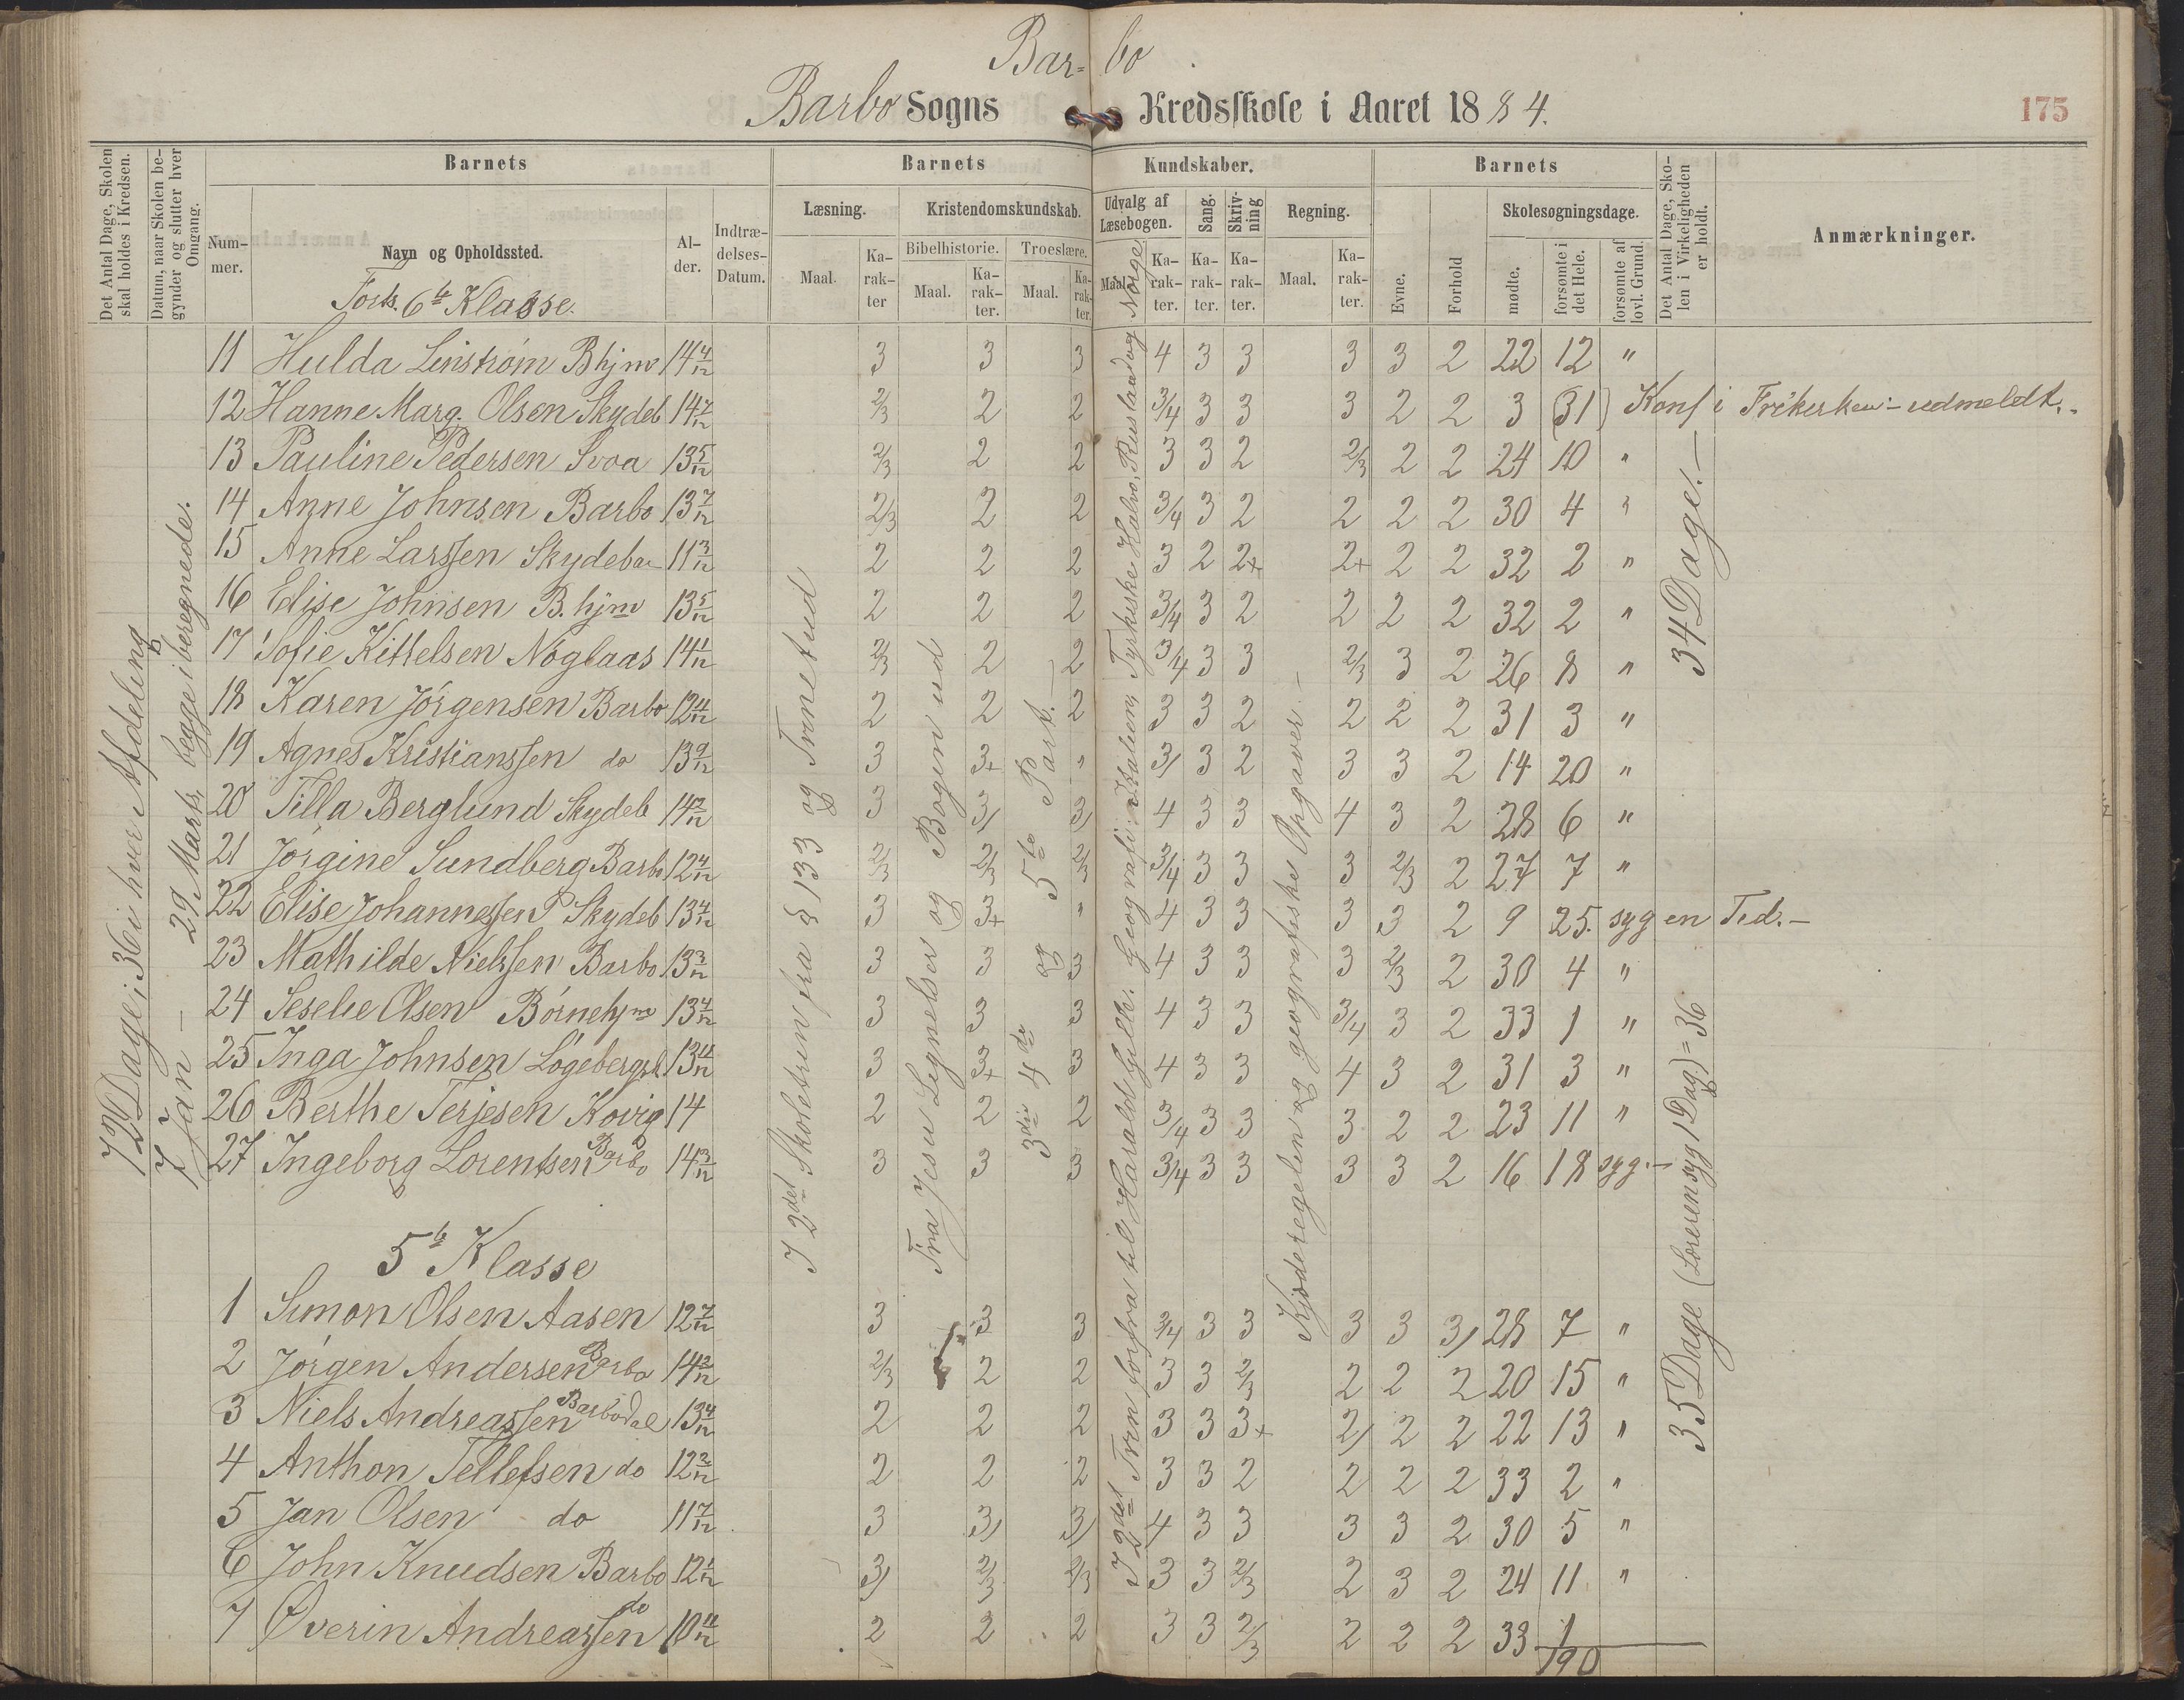 Bar= bo
Barbo Sogns Kredsskole i Aaret 1884.
175
Det Antal Dage, Skolen skal holdes i Kredsen.
Datum, naar Skolen begynder og slutter hver Omgang.
Barnets
Nummer.
Navn og Opholdssted.
Alder.
Indtrædelses-Datum.
Barnets Kundskaber.
Læsning.
Maal.
Karakter
Kristendomskundskab.
Bibelhistorie.
Maal.
Karakter.
Troeslære.
Maal.
Karakter.
Udvalg af Læsebogen.
Maal.
Karakter.
Sang.
Karakter.
Skrivning
Karakter.
Regning.
Maal.
Karakter.
Barnets
Evne.
Forhold
Skolesøgningsdage.
mødte.
forsømte i det Hele.
forsømte af lovl. Grund.
Det Antal Dage, Skolen i Virkeligheden er holdt.
Anmærkninger.
Forts. 6te Klasse.
72 Dage; 36 i hver Afdeling
7 Jan – 29 Marts, begge iberegnede.
I 2det Skoletrin fra § 133 og Trinet ud
Fra Jesu Lignelser og Bogen ud
3die 4de og 5te Part.–
I 2det Trin forfra til Harald Gille. Geografi: Italien, Tyrkiske Halvø, Rusland og Norge
Kjæderegelen og geografiske Opgaver.–
34 Dage.–
35 Dage (Læreren syg 1 Dag) = 36
11 Hulda Linstrøm Bhjm 14 4/12 3 3 3 4 3 3 3 3 2 22 12 "
12 Hanne Marg. Olsen Skydeb 14 7/12 2/3 2 2 3/4 3 3 3 2 2 3 31) Konf i Frikirken – udmeldt.
13 Pauline Pedersen Svoa 13 5/12 2/3 2 2 3 3 2 2/3 2 2 24 10 "
14 Anne Johnsen Barbo 13 7/12 2/3 2 2 3/4 3 2 2 2 2 30 4 "
15 Anne Larssen Skydeba 11 3/12 2 2 2 3 2 2+ 2+ 2 2 32 2 "
16 Elise Johnsen B.hjm 13 5/12 2 2 2 3/4 3 2 2 2 2 32 2 "
17 Sofie Kittelsen Nøglaas 14 1/12 2/3 2 2 3/4 3 3 2/3 3 2 26 8 "
18 Karen Jørgensen Barbo 12 4/12 2 2 2 3 3 2 2 2 2 31 3 "
19 Agnes Kristianssen do 13 9/12 3 3+ " 3/ 3 2 3 3 2 14 20 "
20 Tilla Berglund Skydeb 14 2/12 3 3/ 3/ 4 3 3 4 3 2 28 6 "
21 Jørgine Sundberg Barbo 12 4/12 2/3 2/3 2/3 3/4 3 3 3 2/3 2 27 7 "
22 Elise Johannessen P Skydeb 13 4/12 3 3+ " 4 3 3 3 3 2 9 25. syg en Tid.–
23 Mathilde Nielssen Barbo 13 3/12 3 3 3 4 3 3 3 2/3 2 30 4 "
24 Seselie Olsen Børnehjm 13 4/12 3 3 3 4 3 3 3/4 3 2 33 1 "
25 Inga Johnsen Løgebergsk. 13 11/12 3 3+ 3 4 3 3 4 3 2 31 3 "
26 Berthe Terjesen Kovig 14 2 2 2 3/4 3 3 3 2 2 23 11 "
27 Ingeborg Lorentsen Barbo 14 3/12 3 3 3 3/4 3 3 3 3 2 16 18 syg.–
5te Klasse
1 Simon Olsen Aasen 12 7/12 3 3 3 3/4 3 3 3 3 3/ 28 7 "
2 Jørgen Andersen Barbo 14 2/12 2/3 2 2 3 3 2/3 2 2 2 20 15 "
3 Niels Andreassen Barbodal 13 4/12 2 2 2 3 3 3+ 2/ 2 2 22 13 "
4 Anthon Tellefsen do 12 3/12 2 2 2 3 3 2 2 2 2 33 2 "
5 Jan Olsen do 11 7/12 3 3/ 3/ 4 3 3 3 3 2 30 5 "
6 John Knudsen Barbo 12 1/12 3/ 2/3 2/3 3 3 2/3 2 3 2 24 11 "
7 Øverin Andreassen do 10 11/12 2 2 2 3 3 2/3 2 2 2 33 1
190